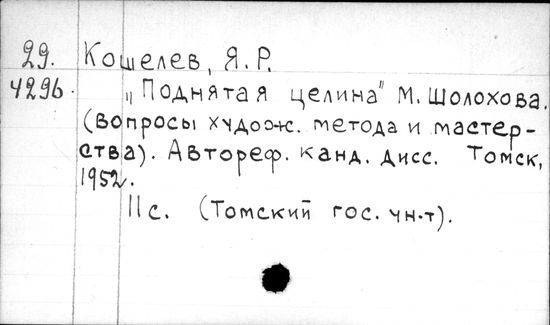 29. Кошелев, Я.Р.
4296. „Поднятая целина" М. Шолохова.
(вопросы худож. метода и мастер-
ства). Автореф. канд. дисс. Томск,
1952.
11с. (Томский гос. ун-т).